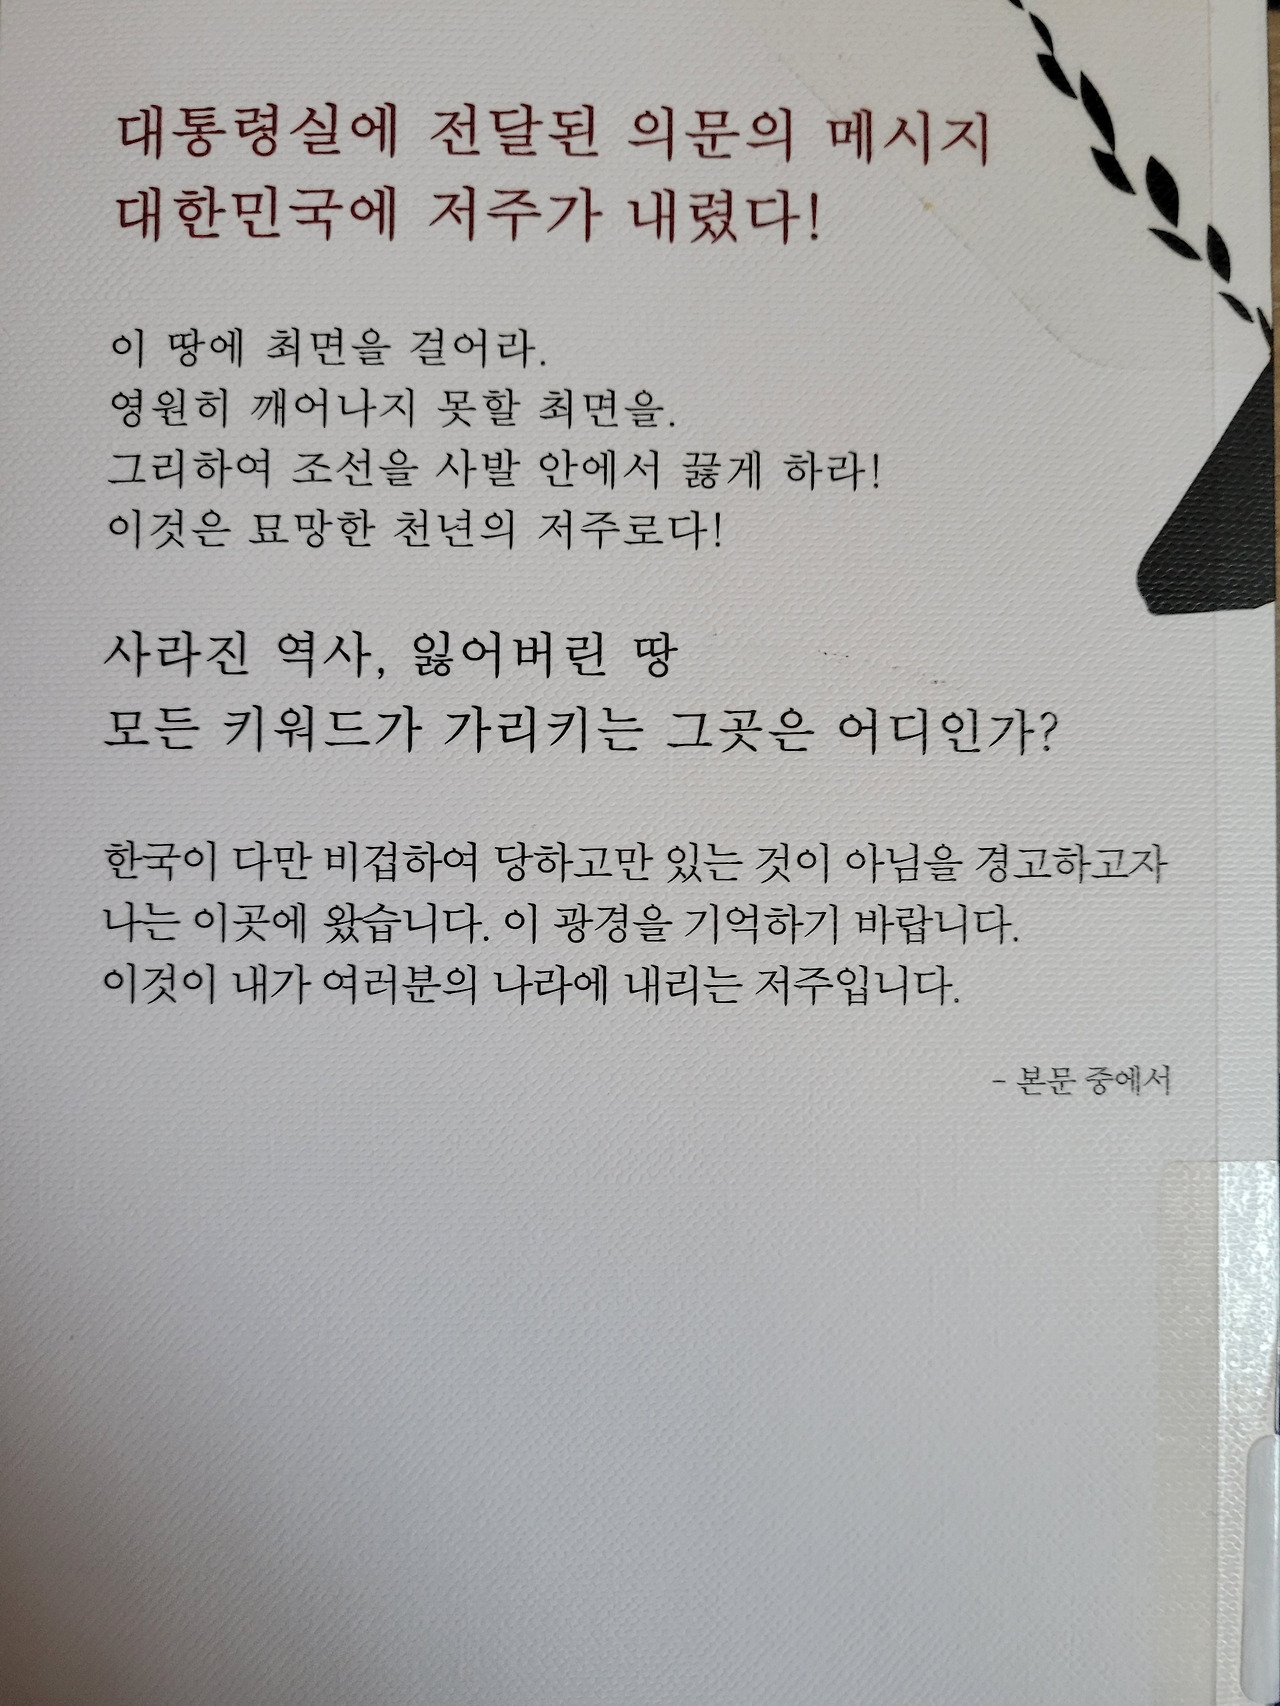 대통령실에 전달된 의문의 메시지
대한민국에 저주가 내렸다!
이 땅에 최면을 걸어라.
영원히 깨어나지 못할 최면을.
그리하여 조선을 사발 안에서 끓게 하라!
이것은 묘망한 천년의 저주로다!
사라진 역사, 잃어버린 땅
모든 키워드가 가리키는 그곳은 어디인가?
한국이 다만 비겁하여 당하고만 있는 것이 아님을 경고하고자
나는 이곳에 왔습니다. 이 광경을 기억하기 바랍니다.
이것이 내가 여러분의 나라에 내리는 저주입니다.
- 본문 중에서